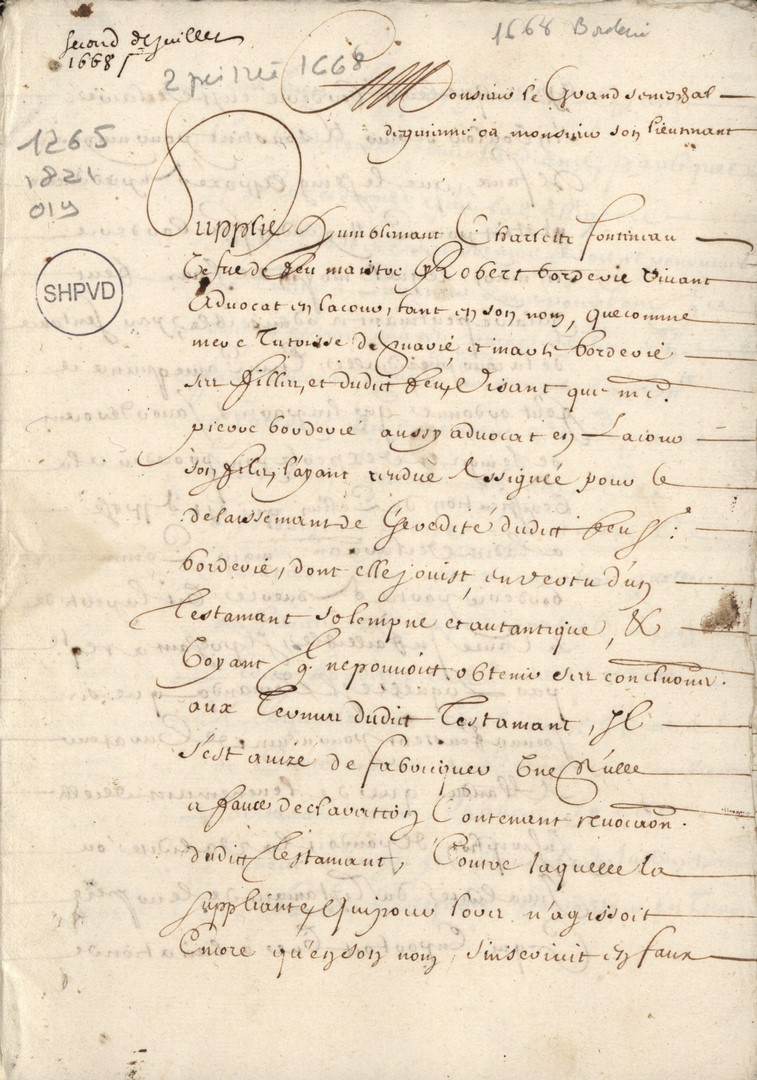 second de juillet
1668
2 juillet 1668
1668 Borderie
1265
1821
019
SHPVD
Monsieur le Grand seneschal
de guienne ou monsieur son lieutenant
Supplie humblemant Charlotte fontineau
vefve de feu maistre Robert borderie vivant
Advocat en la cour, tant en son nom, que comme
mere Tutrisse de marie et marte borderie
ses filles, et dudict feu, Disant que me
pierre borderie aussy advocat en Lacour
son filz, l'ayant rendue Assignée pour le
delaissemant de l'heredité dudict feu sr
borderie, dont elle jouist, en vertu d'un
Testamant solempne et autantique, &
voyant q. ne pouvoict obtenir ses conclusions
aux Termes dudict Testamant, Il
s'est avizé de fabricquer une Nulle
& fauce declaration Contenant revocaon.
dudict Testamant, Contre laquelle la
suppliante, qui pour lors n'agissoit
Encore qu'en son nom, s'inscrivit en faux